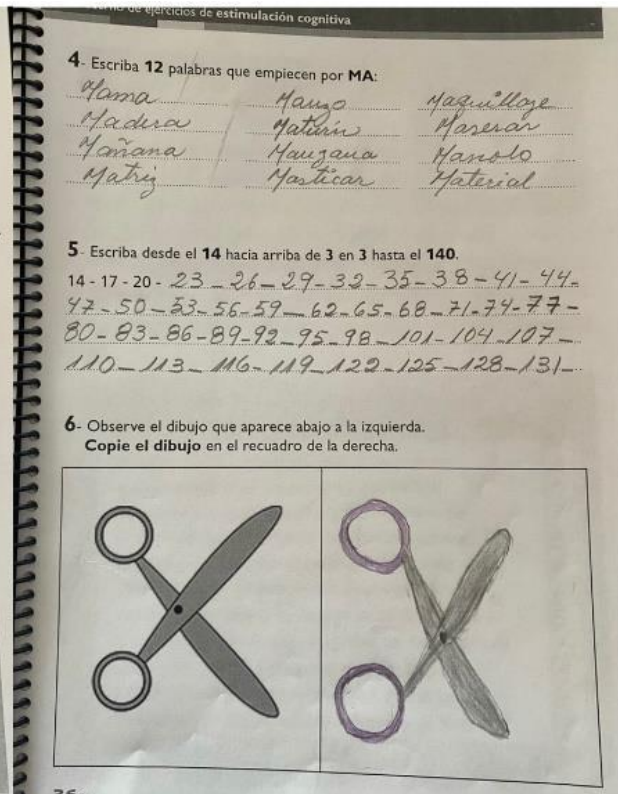 de ejercicios de estimulación cognitiva
4- Escriba 12 palabras que empiecen por MA:
Mama Mango Maquillaje
Madera Maturín Maserar
Mañana Manzana Manolo
Matriz Masticar Material
5- Escriba desde el 14 hacia arriba de 3 en 3 hasta el 140.
14 - 17 - 20 - 23 - 26 - 29 - 32 - 35 - 38 - 41 - 44 -
47 - 50 - 53 - 56 - 59 - 62 - 65 - 68 - 71 - 74 - 77 -
80 - 83 - 86 - 89 - 92 - 95 - 98 - 101 - 104 - 107 -
110 - 113 - 116 - 119 - 122 - 125 - 128 - 131 -
6- Observe el dibujo que aparece abajo a la izquierda.
Copie el dibujo en el recuadro de la derecha.